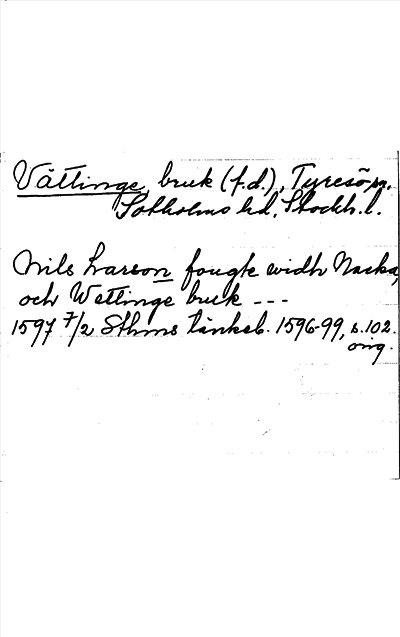 Vättinge, bruk (f.d.), Tyresö sn,
Sotholms hd, Stockh. l.
Nils Larson fougte widh Nacka,
och Wettinge bruk ---
1597 7/2 Sthms tänkeb. 1596-99, s. 102.
orig.